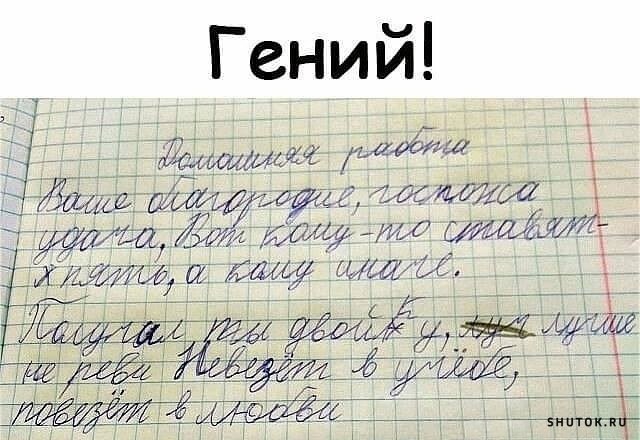 Гений!
Домашняя работа
Ваше благородие, госпожа
удача, Вот кому-то ставят-
х пять, а кому иначе.
Получал ты двойку, луч лучше
не реви Невезёт в учёбе,
повезёт в любви
SHUTOK.RU